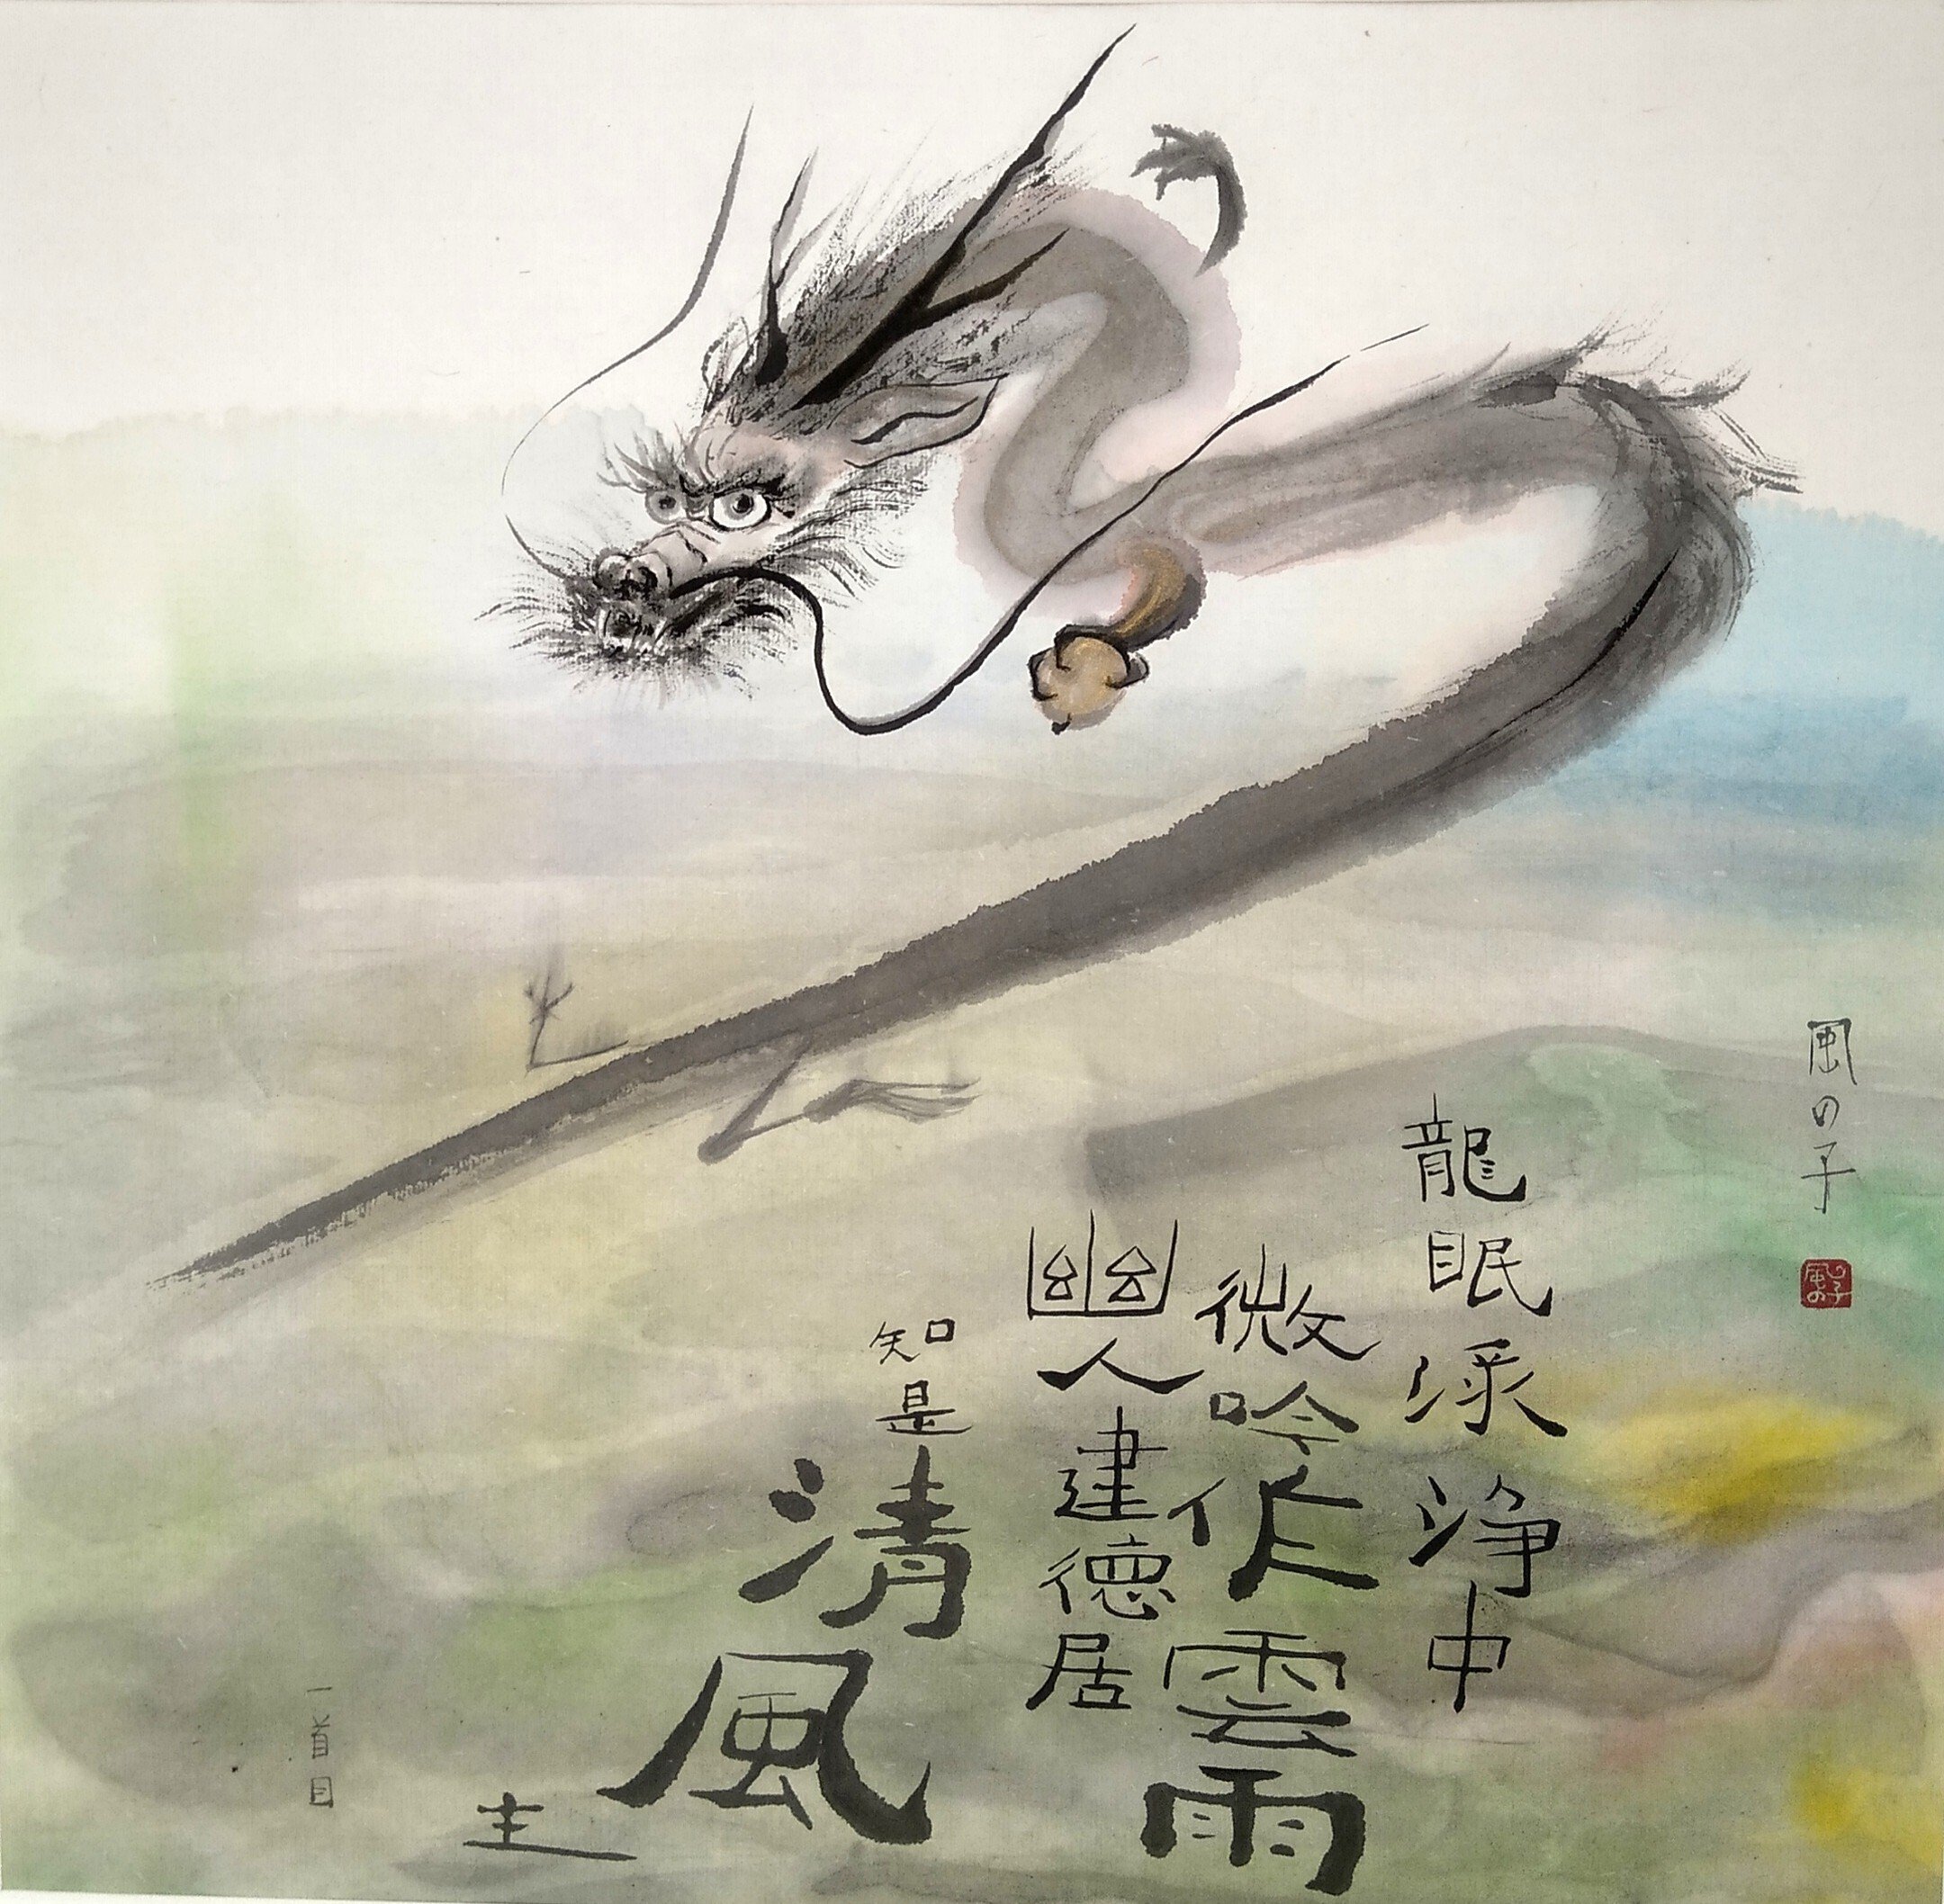 風の子
風の子
龍眠渌浄中
微吟作雲雨
幽人建徳居
知是清風主
一首目